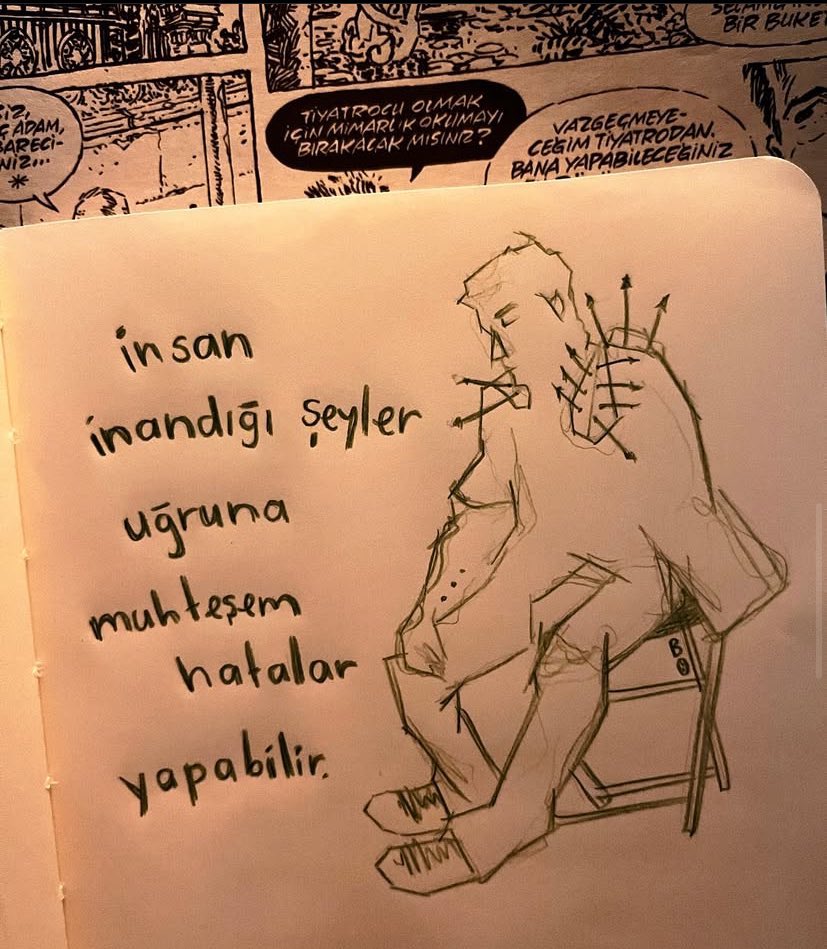 BİR BUKE
İZ,
Ç ADAM,
BARECİ-
NİZ...
*
TİYATROCU OLMAK
İÇİN MİMARLIK OKUMAYI
BIRAKACAK MISINIZ?
VAZGEÇMEYE-
CEĞİM TİYATRODAN.
BANA YAPABİLECEĞİNİZ
insan
inandığı şeyler
uğruna
muhteşem
hatalar
yapabilir.
B